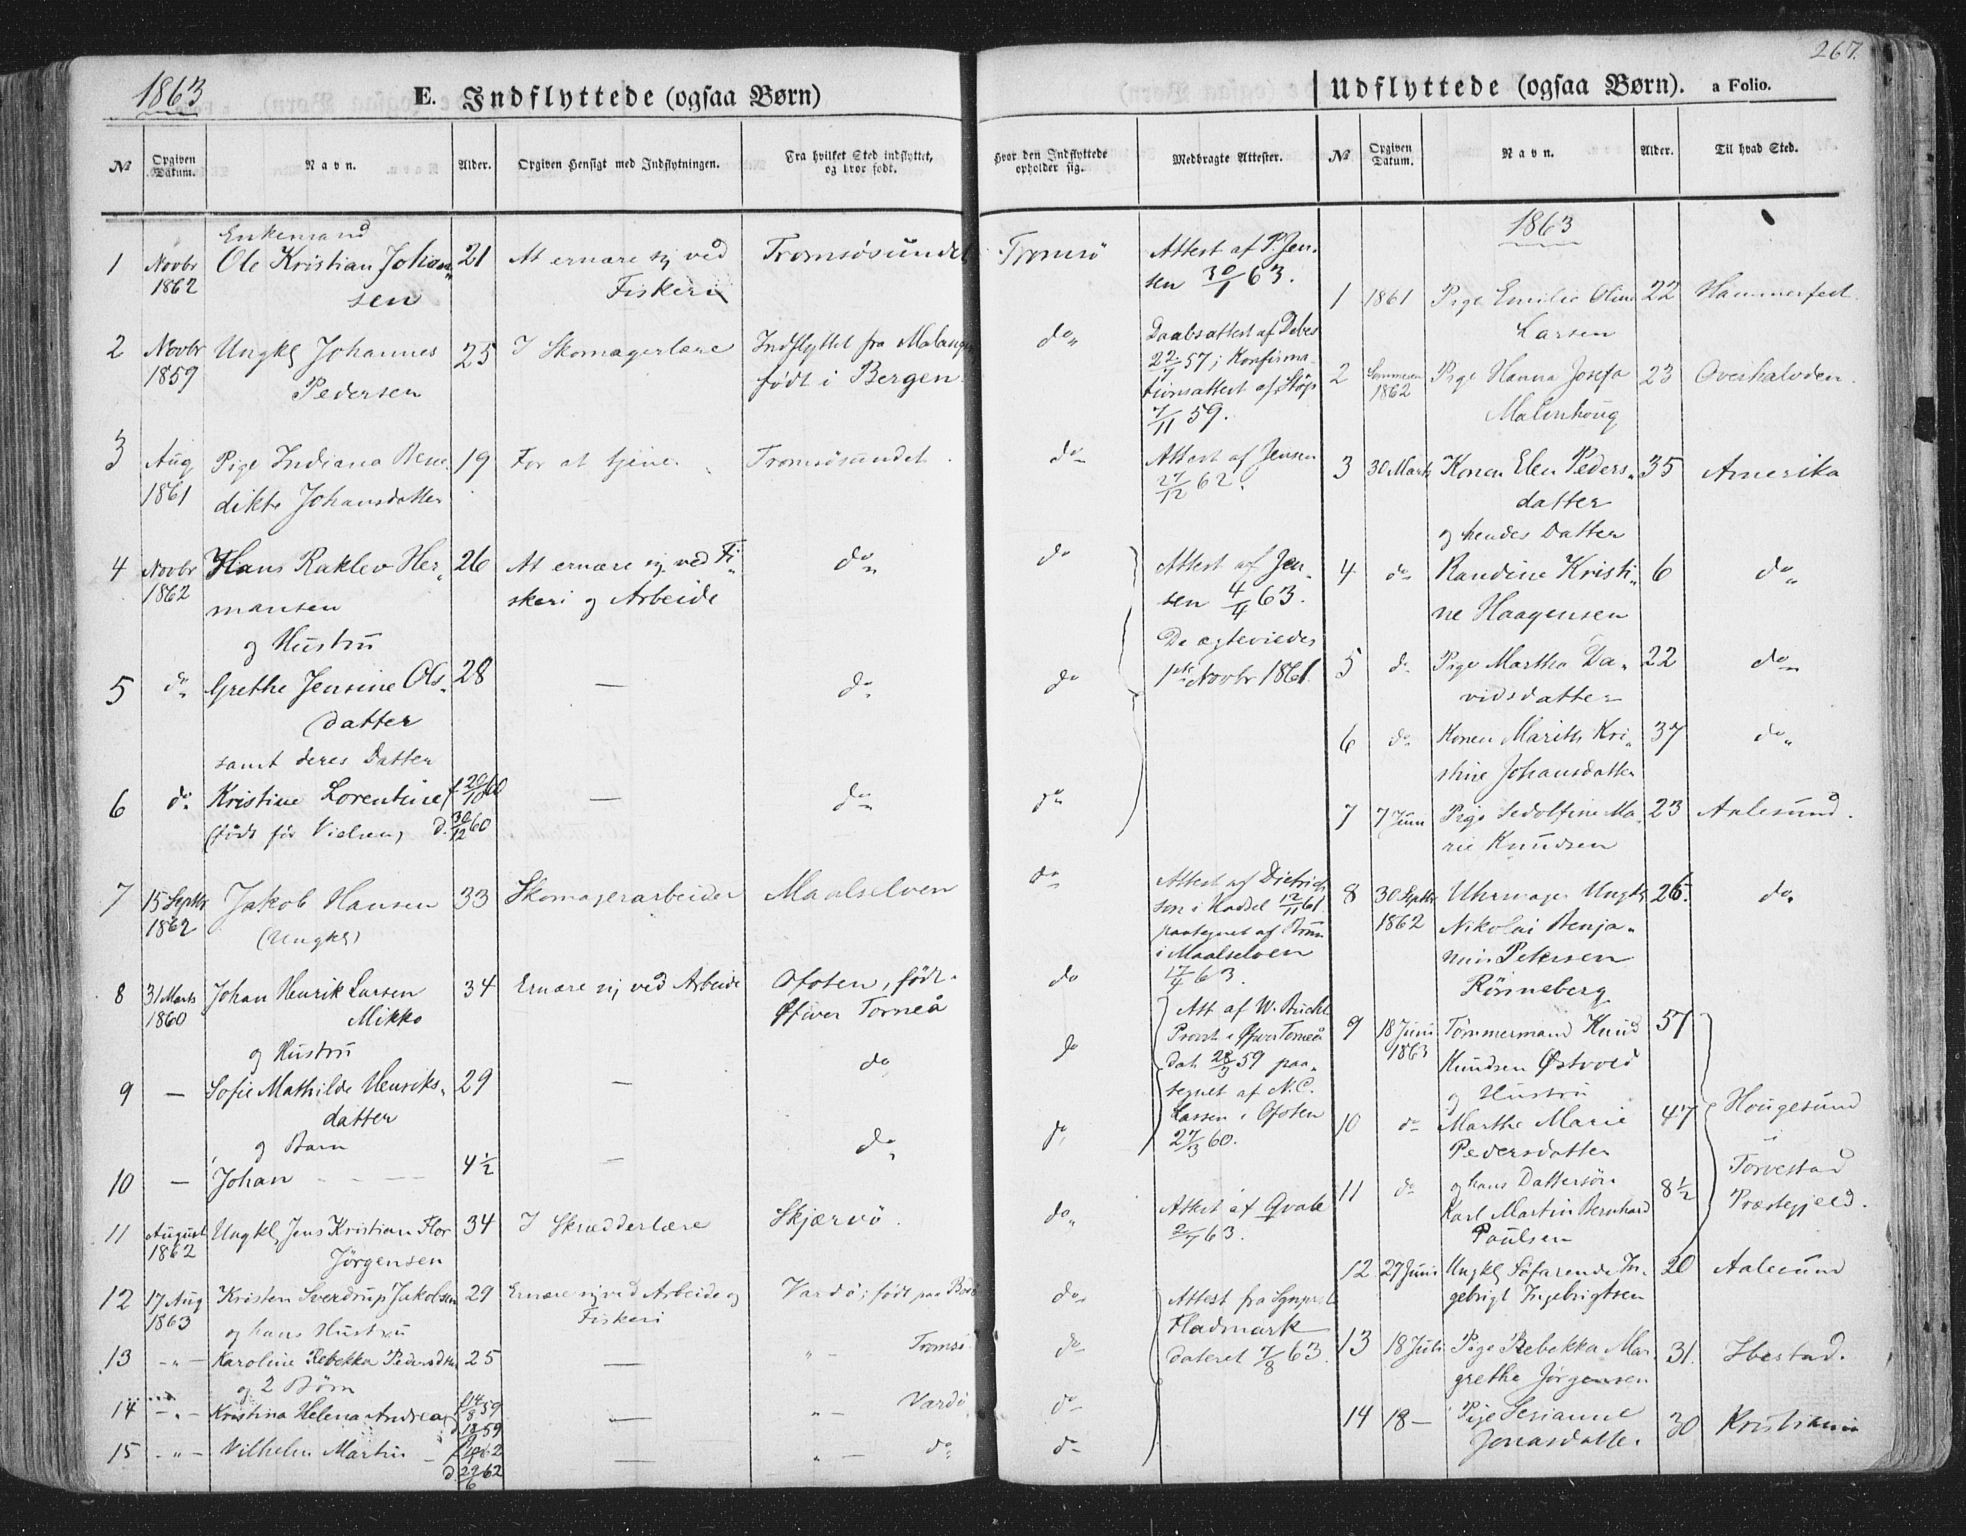 1863
E. Indflyttede (ogsaa Børn)
№
Opgiven Datum.
Navn.
Alder.
Opgiven Hensigt med Indflytningen.
Fra hvilket Sted indflyttet, og hvor født.
1 Novbr 1862 Enkemand Ole Kristian Johan- 21 At ernære sig ved Tromsøsundet
sen Fiskeri
2 Novbr 1859 Ungkl Johannes 25 I Skomagerlære Indflyttet fra Malangen
Pedersen født i Bergen
3 Aug 1861 Pige Indiana Bene 19 For at tjene Tromsøsundet
dikte Johansdatter
4 Novbr 1862 Hans Raklev Her- 26 At ernære sig ved Fi- do
mansen skeri og Arbeide
og Hustru
5 do Grethe Jensine Ols- 28 — do
datter
samt deres Datter
6 do Kristine Lorentine f. 20/10 60 — do
(født før Vielsen) d. 30/12 60
7 15 Septbr 1862 Jakob Hansen 33 Skomagerarbeider Maalselven
(Ungkl)
8 31 Marts 1860 Johan Henrik Larsen 34 Ernære sig ved Arbeide Ofoten, født
Mikko Øfver Torneå
og Hustru
9 — Sofie Mathilde Henriks- 29 — do
datter
og Barn
10 — Johan 4 ½ — do
11 August 1862 Ungkl Jens Kristian Flor 34 I Skrædderlære Skjærvö
Jørgensen
12 17 Aug 1863 Kristen Sverdrup Jakobsen 29 Ernære sig ved Arbeide og Vardö; født paa Bodö
og hans Hustru Fiskeri
13 - „ - Karoline Rebekka Pedersdtr 25 — „ — Tromsö
og 2 Børn
14 - „ - Kristina Helena Andrea f 14/8 59 — „ — Vardö
15 - „ - Vilhelm Martin — „ — do
d. 29/6 62
267.
Udflyttede (ogsaa Børn). a Folio.
Hvor den Indflyttede opholder sig.
Medbragte Attester.
№
Opgiven Datum.
Navn.
Alder.
Til hvad Sted.
Tromsö Attest af P. Jen-
sen 30/1 63.
do Daabsattest af Debes
57; Konfirma-
tionsattest af
7/11 59.
do Attest af Jensen
27/12 62.
do Attest af Jen-
sen 4/4 63.
De ægteviedes
1ste Novbr 1861.
do
do
do Attest af Dietrich
son i Haddel 12/11 61
paategnet af
i Maalselven
17/4 63.
do Att af W.
Provst i Øfver Torneå
do dat 28/9 59 paa-
tegnet af N. C.
Larsen i Ofoten
do 27/3 60.
do Attest af Qvale
2/7 63.
do Attest fra
Hadmark
do dateret 7/8 63.
do
do
1863
1 1861 Pige Emilie Oline 22 Hammerfest
Larsen
2 Sommeren 1862 Pige Hanna Josefa 23 Overhalvden
Malenhoug
3 30 Marts Konen Elen Peders- 35 Amerika
datter
og hendes Datter
4 do Randine Kristi- 6 do
ne Haagensen
5 do Pige Martha Da- 22 do
vidsdatter
6 do Konen Marith Kri- 37 do
stine Johansdatter
7 7 Juni Pige Sedolfine Ma- 23 Aalesund.
rie Knudsen
8 30 Septbr 1862 Uhrmager Ungkl 26. do
Nikolai Benja-
min Petersen
Rönneberg
9 18 Juni 1863 Tømmermand Knud 57
Knudsen Østvold
og Hustru
10 do Marthe Marie 47 Hougesund
Pedersdatter i
og hans Dattersön Torvestad
11 do Karl Martin Bernhard 8 ½ Præstegjeld.
Paulsen
12 27 Juni Ungkl Söfarende In- 20 Aalesund
gebrigt Ingebrigtsen
13 18 Juli Pige Rebekka Mar- 31. Ibestad.
grethe Jørgensen
14 18 — Pige Serianne 30 Kristiania
Jonasdatter